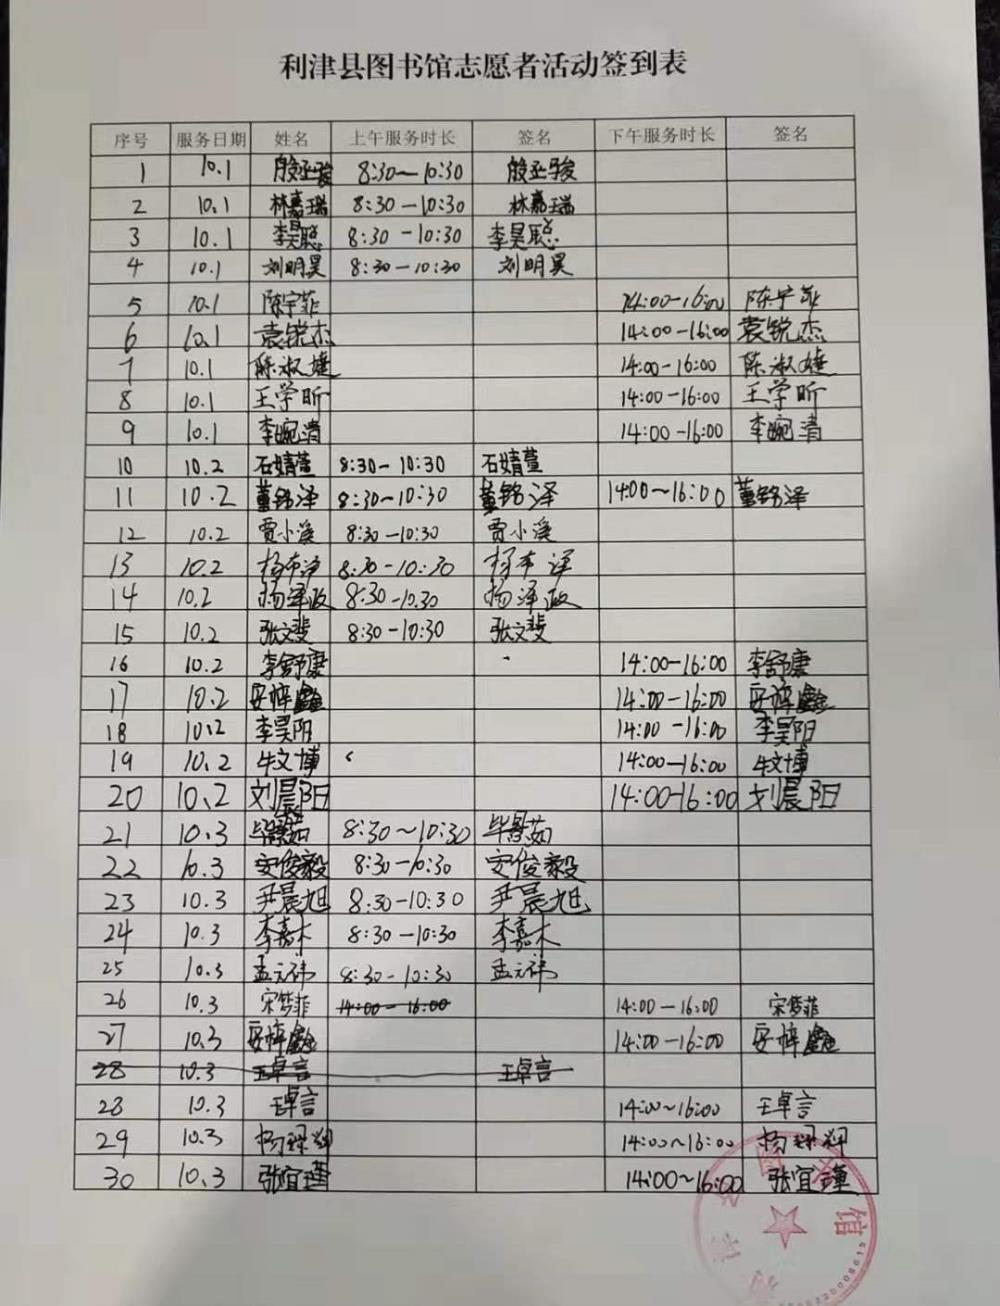 利津县图书馆志愿者活动签到表
序号 服务日期 姓名 上午服务时长 签名 下午服务时长 签名
1 10.1 殷丕骏 8:30~10:30 殷丕骏
2 10.1 林嘉瑞 8:30-10:30 林嘉瑞
3 10.1 李昊聪 8:30-10:30 李昊聪
4 10.1 刘明昊 8:30-10:30 刘明昊
5 10.1 陈宇菲 14:00-16:00 陈宇菲
6 10.1 袁锐杰 14:00-16:00 袁锐杰
7 10.1 陈淑婕 14:00-16:00 陈淑婕
8 10.1 王学昕 14:00-16:00 王学昕
9 10.1 李婉清 14:00-16:00 李婉清
10 10.2 石婧萱 8:30-10:30 石婧萱
11 10.2 董铭泽 8:30~10:30 董铭泽 14:00~16:00 董铭泽
12 10.2 贾小溪 8:30-10:30 贾小溪
13 10.2 8:30-10:30
14 10.2 杨泽政 8:30-10.30 杨泽政
15 10.2 张文斐 8:30-10:30 张文斐
16 10.2 李舒康 14:00-16:00 李舒康
17 10.2 安梓 14:00-16:00 安梓
18 10.2 李昊阳 14:00-16:00 李昊阳
19 10.2 牛文博 14:00-16:00 牛文博
20 10.2 刘晨阳 14:00-16:00 刘晨阳
21 10.3 毕景茹 8:30~10:30 毕景茹
22 10.3 安俊毅 8:30-10:30 安俊毅
23 10.3 尹晨旭 8:30-10:30 尹晨旭
24 10.3 李嘉木 8:30-10:30 李嘉木
25 10.3 孟元祎 8:30-10:30 孟元祎
26 10.3 宋梦菲 14:00-16:00 14:00-16:00 宋梦菲
27 10.3 安梓 14:00-16:00 安梓
28 10.3 王卓言 王卓言
28 10.3 王卓言 14:00~16:00 王卓言
29 10.3 杨 14:00~16:00 杨
30 10.3 张宜瑾 14:00~16:00 张宜瑾